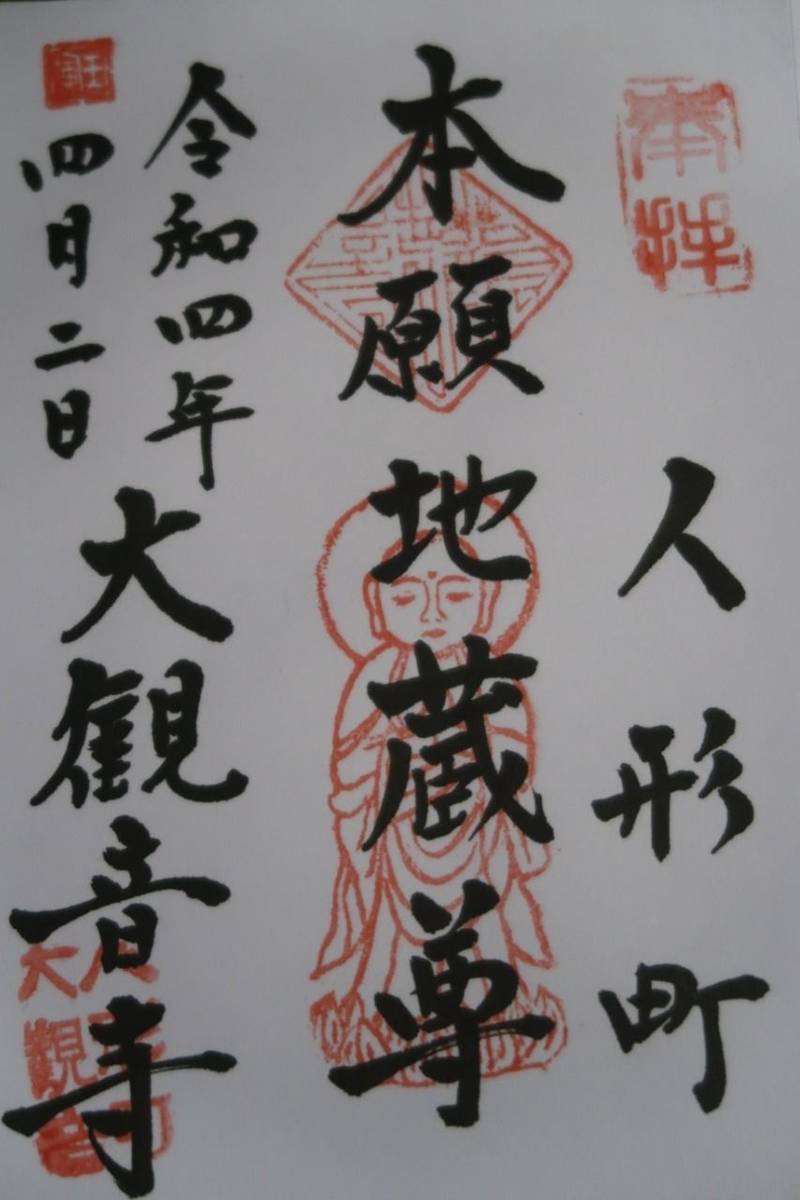 奉拝
人形町
本願地蔵尊
令和四年
四月二日
大観音寺